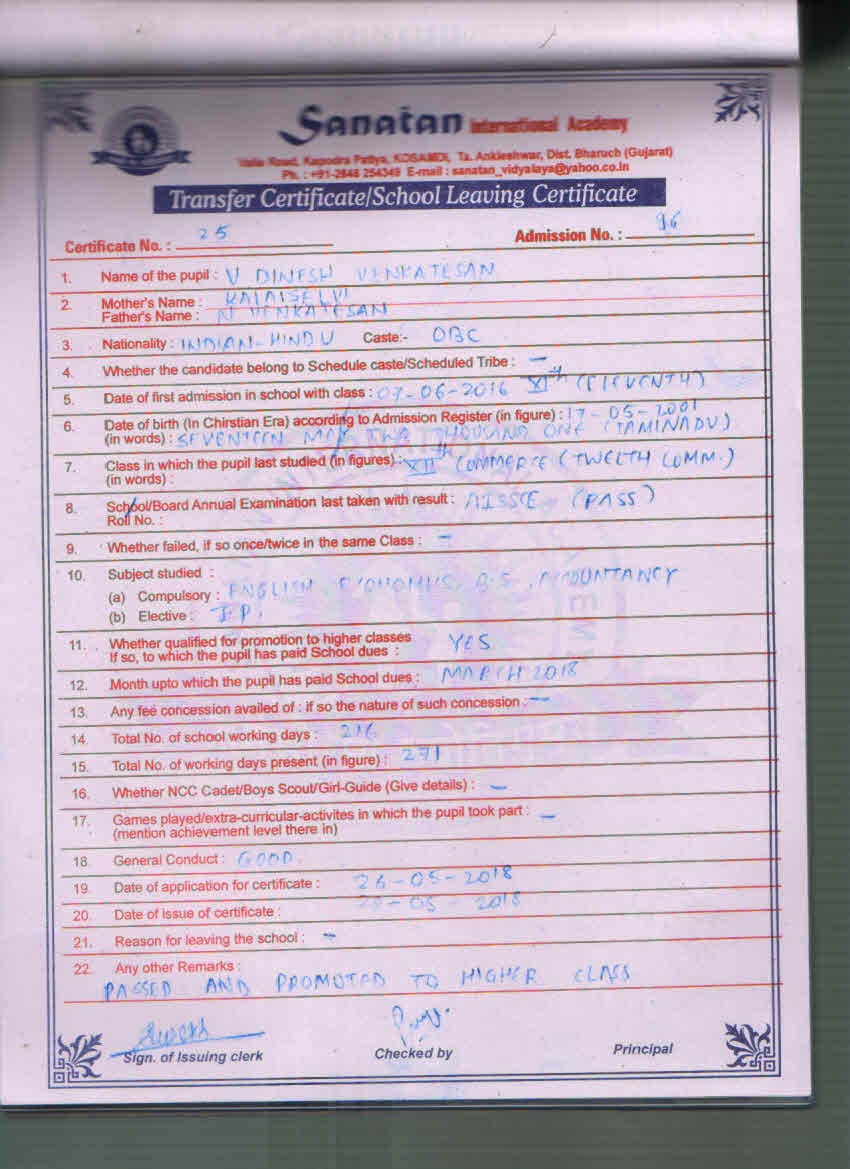 Sanatan International Academy
Valia Road, Kapodra Patiya, KOSAMDI, Ta. Ankleshwar, Dist. Bharuch (Gujarat)
Ph. : +91-2646 254349 E-mail : sanatan_vidyalaya@yahoo.co.in
Transfer Certificate/School Leaving Certificate
Certificate No. : 25 Admission No. : 96
1. Name of the pupil : V DINESH VENKATESAN
2. Mother's Name : KALAISELVI
Father's Name : N VENKATESAN
3. Nationality : INDIAN-HINDU Caste:- OBC
4. Whether the candidate belong to Schedule caste/Scheduled Tribe : —
5. Date of first admission in school with class : 07-06-2016 XIth (ELEVENTH)
6. Date of birth (In Chirstian Era) according to Admission Register (in figure) : 17-05-2001
(in words) : SEVENTEEN MAY TWO THOUSAND ONE (TAMINADU)
7. Class in which the pupil last studied (in figures) : XIIth COMMERCE (TWELTH COMM.)
(in words) :
8. School/Board Annual Examination last taken with result : AISSCE (PASS)
Roll No. :
9. Whether failed, if so once/twice in the same Class : —
10. Subject studied :
(a) Compulsory : ENGLISH ECONOMICS, B.S, ACCOUNTANCY
(b) Elective : I.P.
11. Whether qualified for promotion to higher classes YES
If so, to which the pupil has paid School dues :
12. Month upto which the pupil has paid School dues : MARCH 2018
13. Any fee concession availed of : if so the nature of such concession : —
14. Total No. of school working days : 216
15. Total No. of working days present (in figure) : 271
16. Whether NCC Cadet/Boys Scout/Girl-Guide (Give details) : —
17. Games played/extra-curricular-activites in which the pupil took part : —
(mention achievement level there in)
18. General Conduct : GOOD.
19. Date of application for certificate : 26-05-2018
20. Date of issue of certificate : 28-05-2018
21. Reason for leaving the school : —
22. Any other Remarks :
PASSED AND PROMOTED TO HIGHER CLASS
Sign. of Issuing clerk Checked by Principal